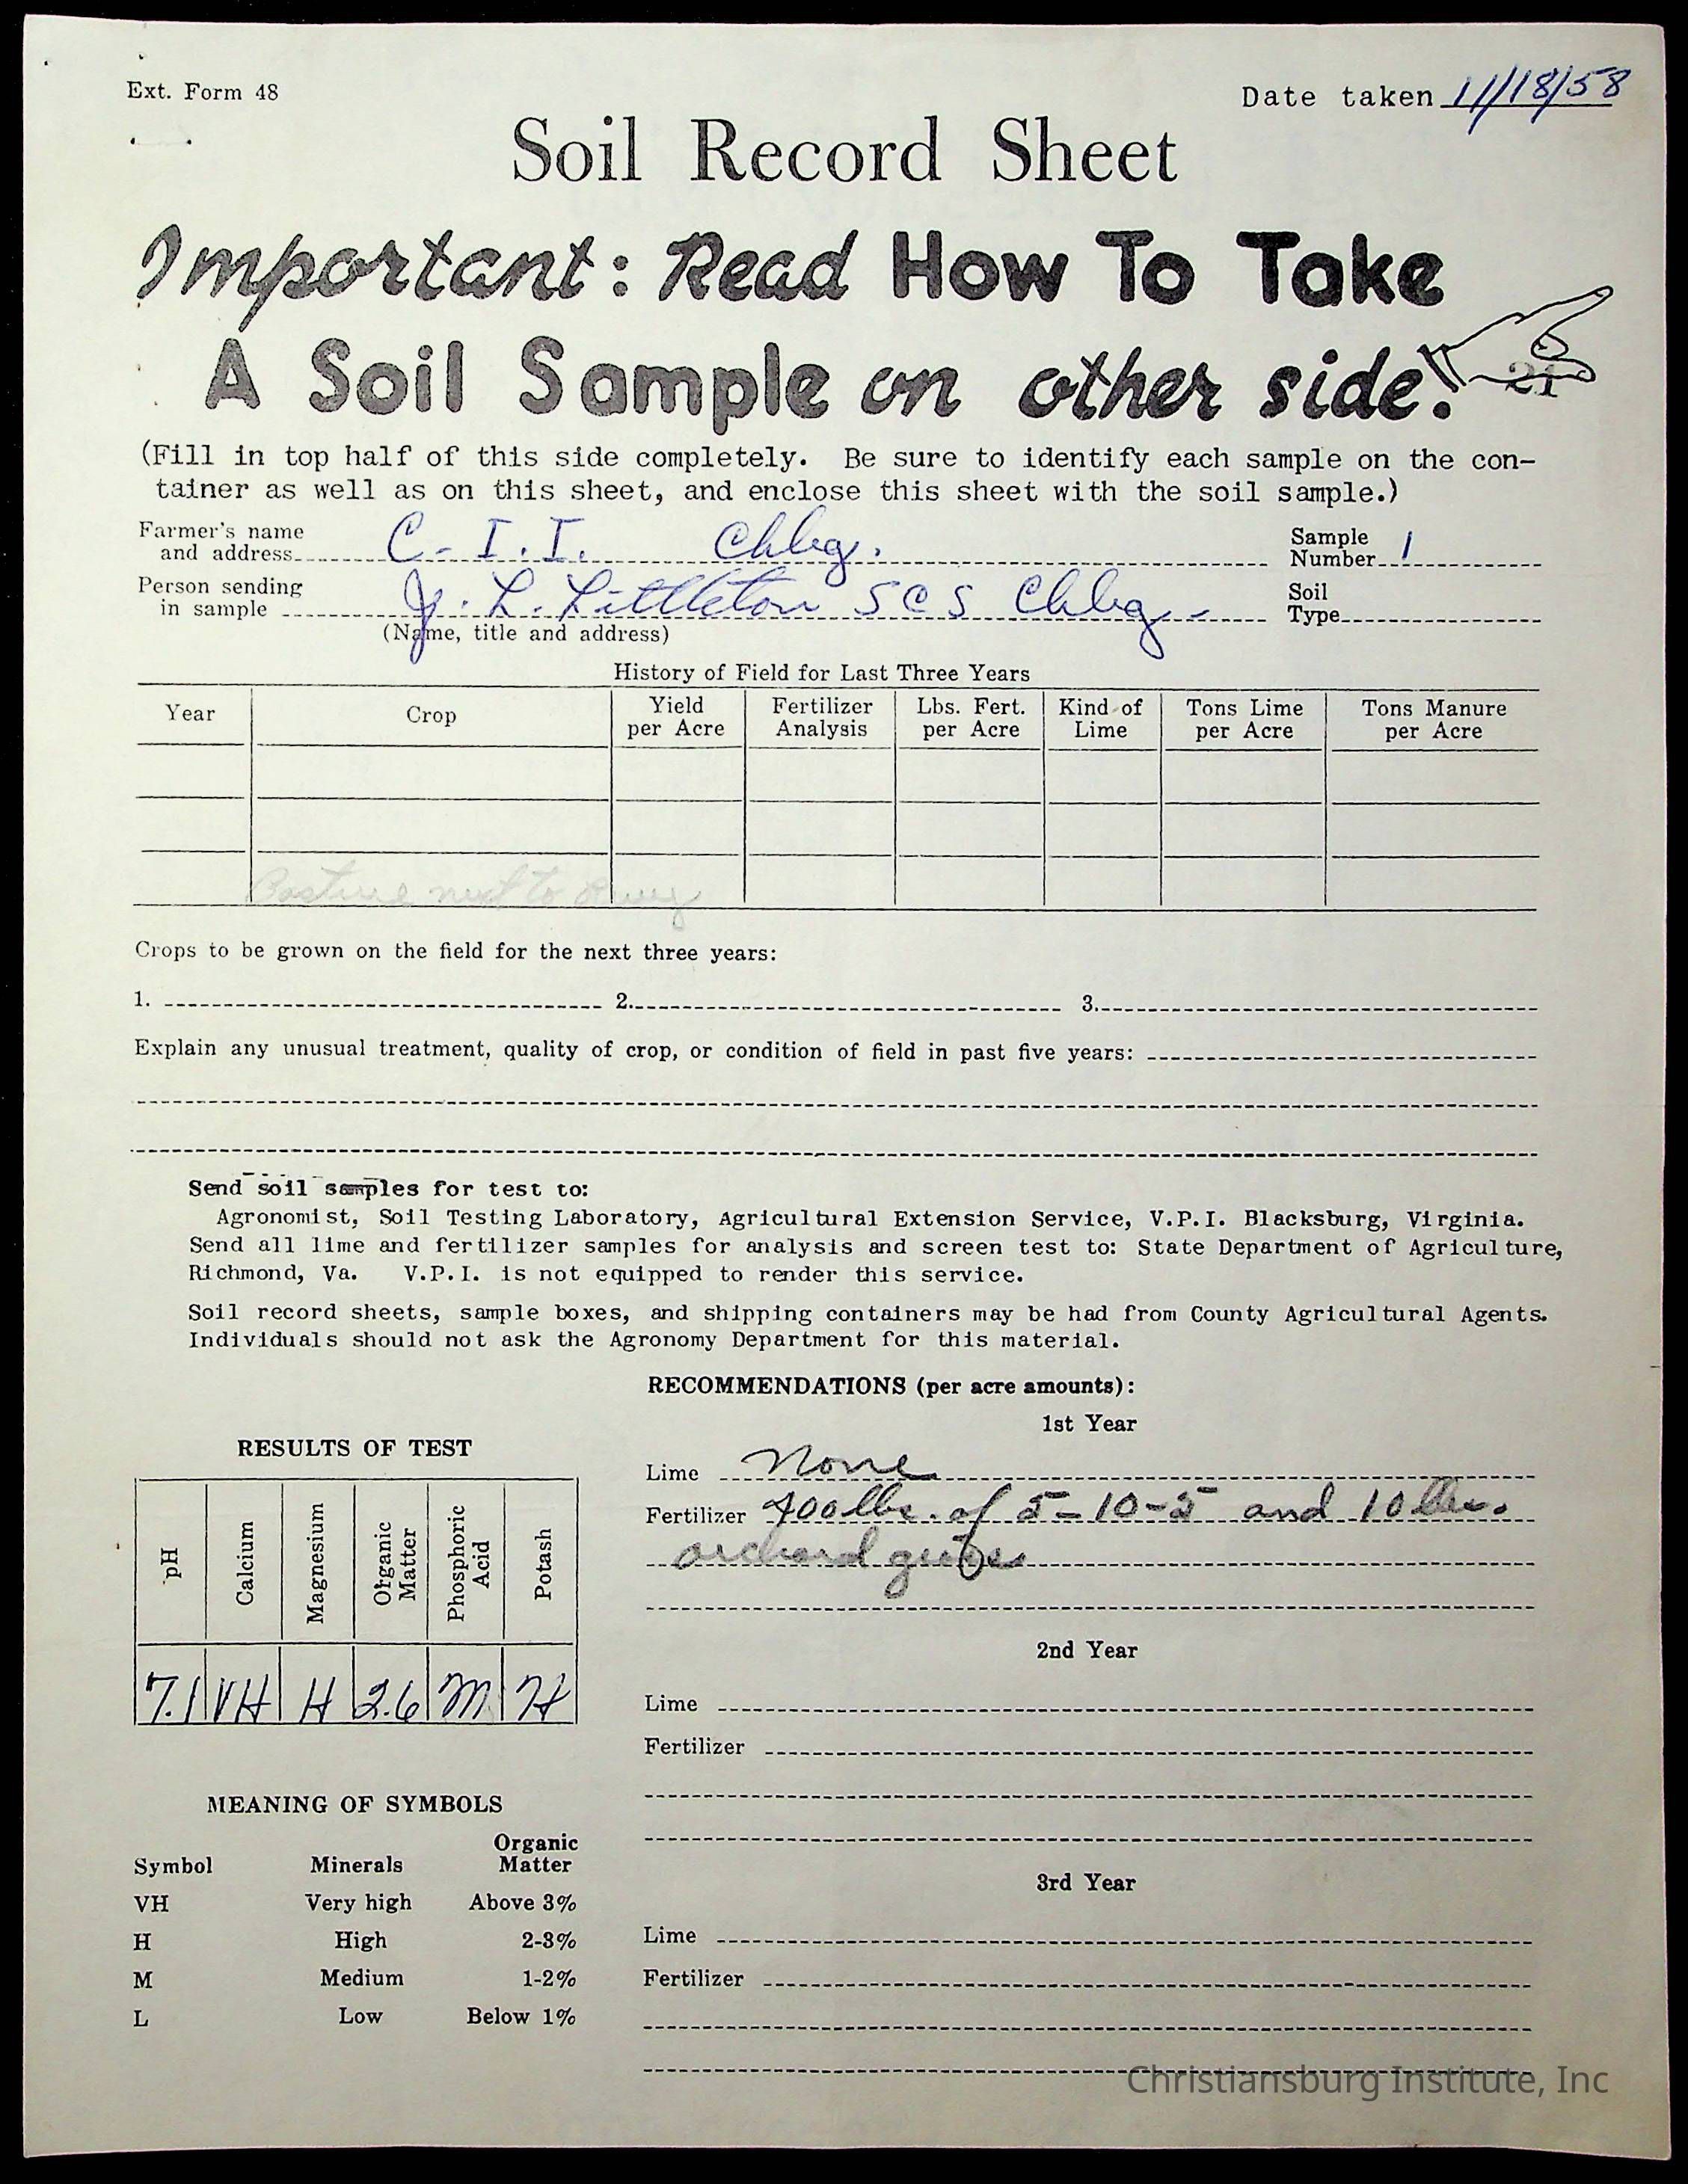 Ext. Form 48
Date taken 11/18/58
Soil Record Sheet
Important: Read How To Take
A Soil Sample on other side.
21
(Fill in top half of this side completely. Be sure to identify each sample on the con-
tainer as well as on this sheet, and enclose this sheet with the soil sample.)
Farmer's name
and address C. I. I. Chbg.
Sample
Number 1
Person sending
in sample J. L. Littleton SCS Chbg-
Soil
Type
(Name, title and address)
History of Field for Last Three Years
Year Crop Yield per Acre Fertilizer Analysis Lbs. Fert. per Acre Kind of Lime Tons Lime per Acre Tons Manure per Acre
Pasture next to
Crops to be grown on the field for the next three years:
1. 2. 3.
Explain any unusual treatment, quality of crop, or condition of field in past five years:
Send soil samples for test to:
Agronomist, Soil Testing Laboratory, Agricultural Extension Service, V.P.I. Blacksburg, Virginia.
Send all lime and fertilizer samples for analysis and screen test to: State Department of Agriculture,
Richmond, Va. V.P.I. is not equipped to render this service.
Soil record sheets, sample boxes, and shipping containers may be had from County Agricultural Agents.
Individuals should not ask the Agronomy Department for this material.
RECOMMENDATIONS (per acre amounts):
1st Year
Lime None
Fertilizer 400 lbs. of 5-10-5 and 10 lbs.
orchard grass
2nd Year
Lime
Fertilizer
3rd Year
Lime
Fertilizer
RESULTS OF TEST
pH Calcium Magnesium Organic Matter Phosphoric Acid Potash
7.1 VH H 2.6 M H
MEANING OF SYMBOLS
Symbol Minerals Organic Matter
VH Very high Above 3%
H High 2-3%
M Medium 1-2%
L Low Below 1%
Christiansburg Institute, Inc